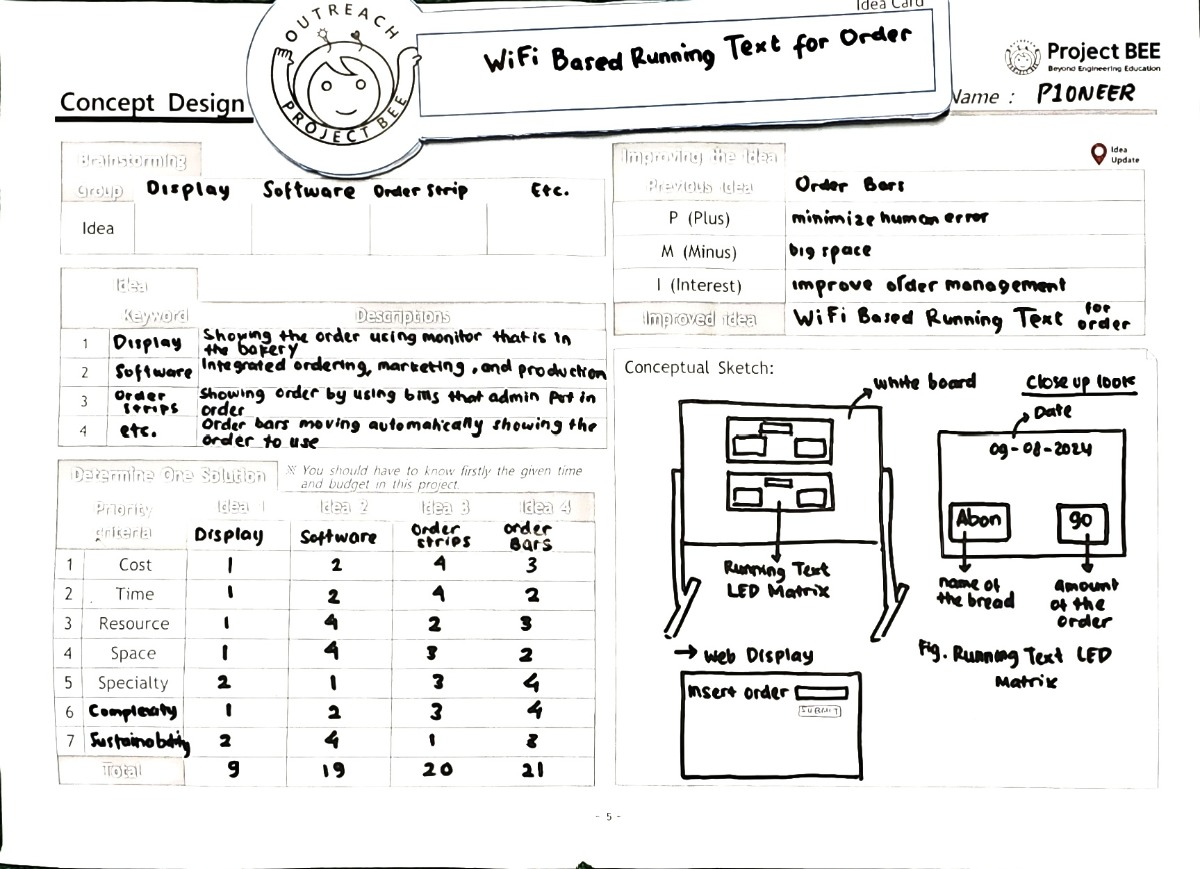 Idea Card
OUTREACH
PROJECT BEE
WiFi Based Running Text for Order
Project BEE
Beyond Engineering Education
Concept Design
Name : P1ONEER
Brainstorming
Group Display Software Order Strip Etc.
Idea
Idea
Keyword Descriptions
1 Display Showing the order using monitor that is in
the bakery
2 Software Integrated ordering, marketing, and production
3 Order strips Showing order by using bills that admin put in
order
4 etc. Order bars moving automatically showing the
order to use
Determine One Solution
※ You should have to know firstly the given time
and budget in this project.
Priority criteria Idea 1 Idea 2 Idea 3 Idea 4
Display Software Order strips order BARS
1 Cost 1 2 4 3
2 Time 1 2 4 2
3 Resource 1 4 2 3
4 Space 1 4 3 2
5 Specialty 2 1 3 4
6 Complexity 1 2 3 4
7 Sustainability 2 4 1 3
Total 9 19 20 21
Improving the Idea
Idea
Update
Previous Idea Order Bars
P (Plus) minimize human error
M (Minus) big space
I (Interest) improve order management
Improved idea WiFi Based Running Text for order
Conceptual Sketch:
white board
Close up look
Date
09-08-2024
Abon 90
Running Text
LED Matrix
name of
the bread
amount
of the
order
Fig. Running Text LED
Matrix
Web Display
Insert order
SUBMIT
- 5 -